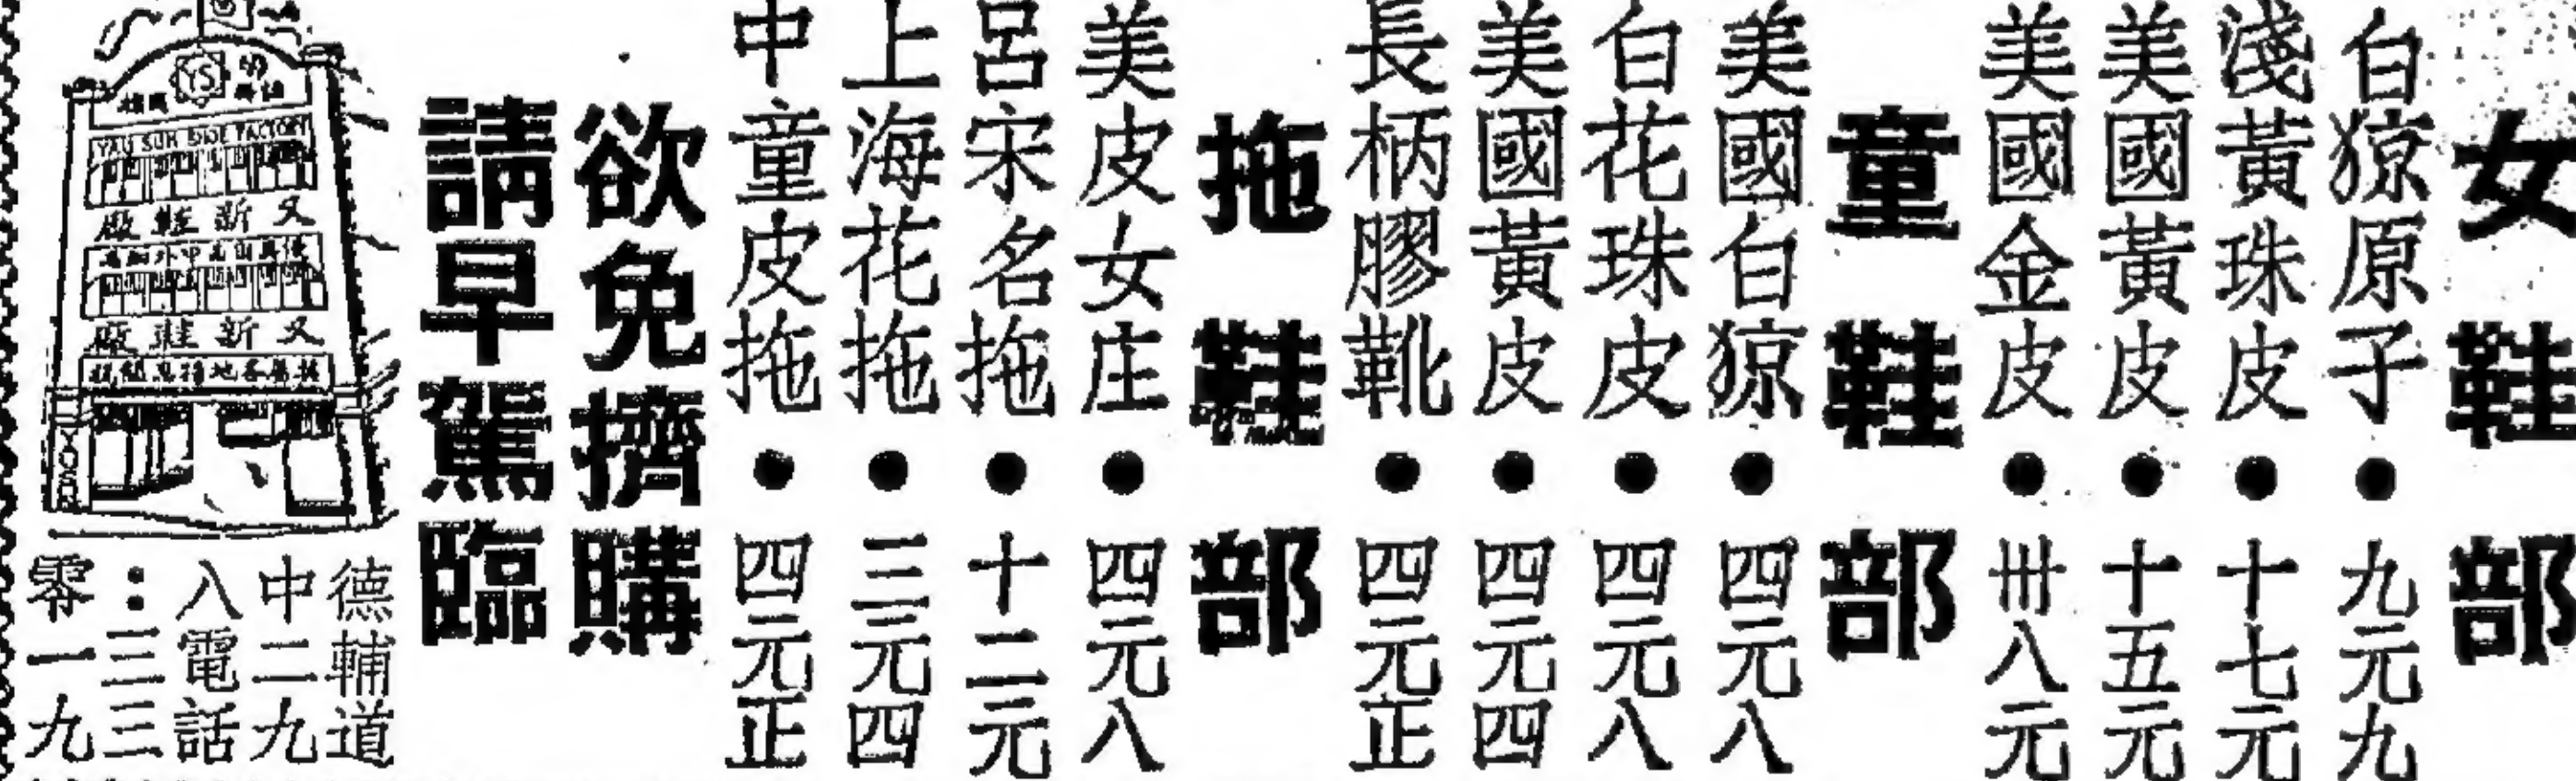 女鞋部
白猄原子●九元九
淺黃珠皮●十七元
美國黃皮●十五元
美國金皮●卅八元
童鞋部
美國白猄●四元八
白花珠皮●四元八
美國黃皮●四元四
長柄膠靴●四元正
拖鞋部
美皮女庄●四元八
呂宋名拖●十二元
上海花拖●三元四
中童皮拖●四元正
欲免擠購
請早駕臨
YS
YAU SUN SHOE FACTORY
又新鞋廠
又新鞋廠
德輔道
中二九
八電話
：三三
零一九